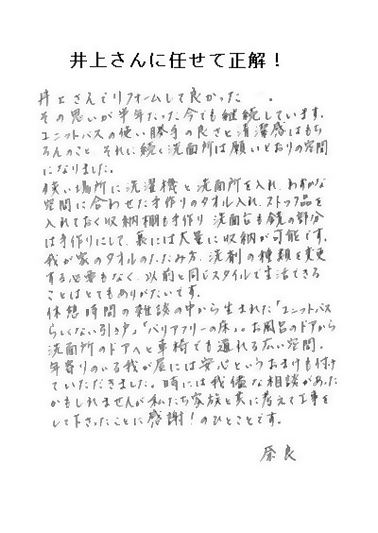 井上さんに任せて正解！
井上さんでリフォームして良かった　。
その思いが半年たった今でも継続しています。
ユニットバスの使い勝手の良さと清潔感はもち
ろんのこと それに続く洗面所は願いどおりの空間
になりました。
狭い場所に洗濯機と洗面所を入れ、わずかな
空間に合わせた手作りのタオル入れ、ストック品を
入れておく収納棚も手作り 洗面台も鏡の部分
は手作りにして、裏には大量に収納が可能です。
我が家のタオルのたたみ方、洗剤の種類を変更
する必要もなく、以前と同じスタイルで生活できる
ことはとてもありがたいです。
休憩時間の雑談の中から生まれた「ユニットバス
らしくない引き戸」「バリアフリーの床」。お風呂のドアから
洗面所のドアへと車椅子も通れる広い空間。
年寄りのいる我が屋には安心というおまけも付け
ていただきました。時には我儘な相談があった
かもしれませんが私たち家族と共に考えて工事を
して下さったことに感謝！のひとことです。
奈良